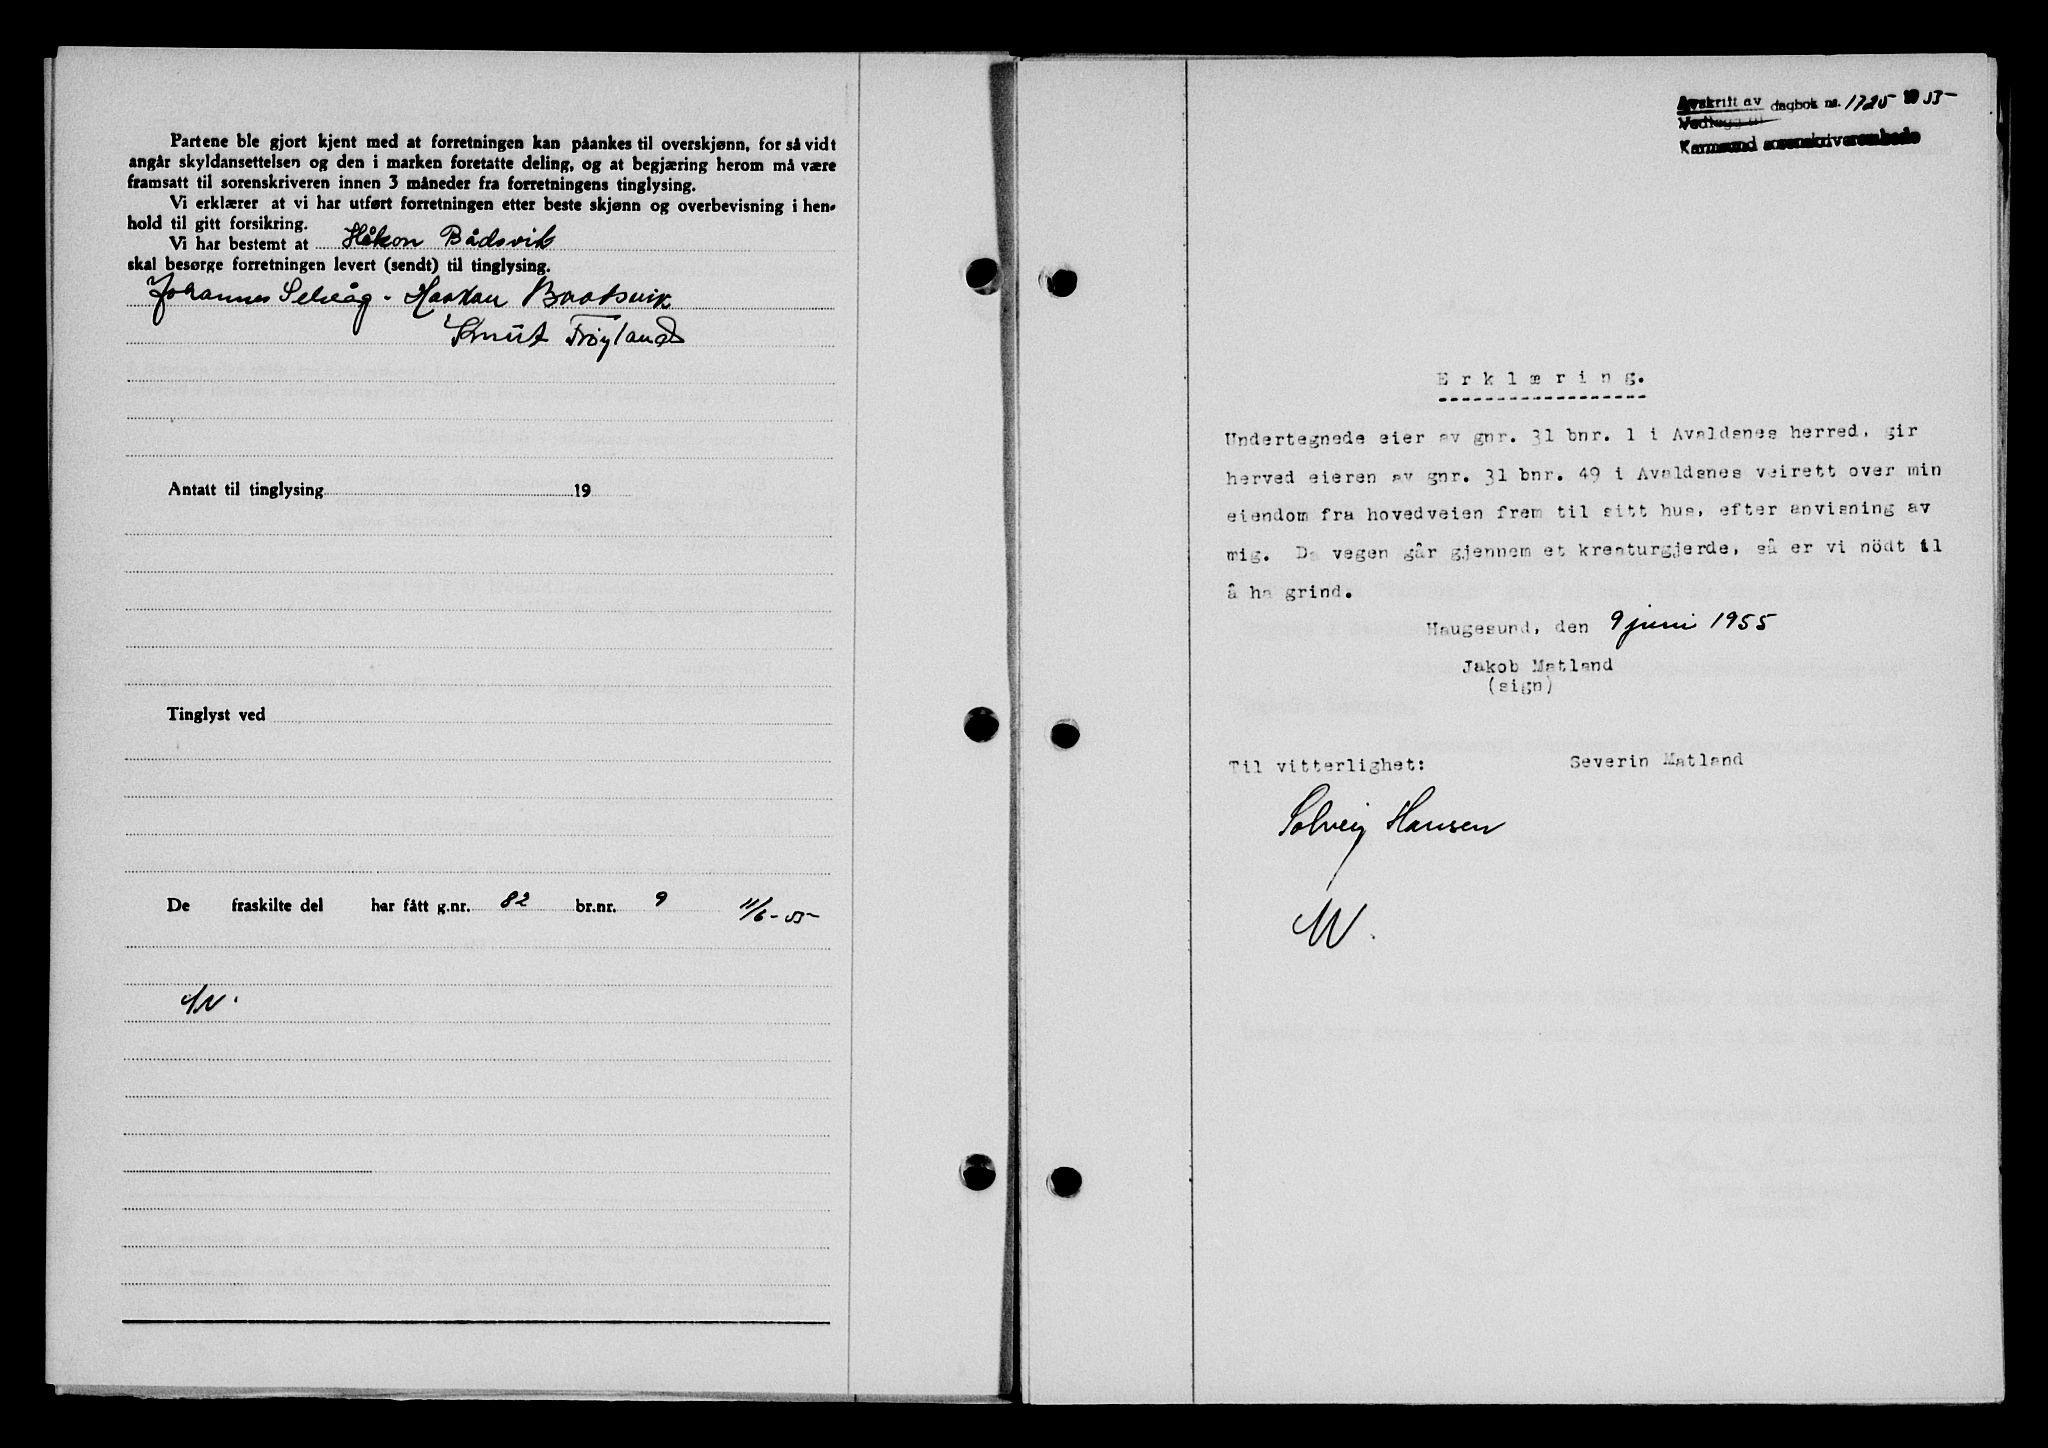 Partene ble gjort kjent med at forretningen kan påankes til overskjønn, for så vidt
angår skyldansettelsen og den i marken foretatte deling, og at begjæring herom må være
framsatt til sorenskriveren innen 3 måneder fra forretningens tinglysing.
Vi erklærer at vi har utført forretningen etter beste skjønn og overbevisning i hen-
hold til gitt forsikring.
Vi har bestemt at Håkon Bådsvik
skal besørge forretningen levert (sendt) til tinglysing.
Johannes Selvåg - Haakon Baatsvik
Knut Frøyland
Antatt til tinglysing 19
Tinglyst ved
De fraskilte del har fått g.nr. 82 br.nr. 9 11/6-55-
Avskrift av
Vedlegg til
dagbok nr. 1725 1955-
Karmsund sorenskriverembede
Erklæring.
Undertegnede eier av gnr. 31 bnr. 1 i Avaldsnes herred, gir
herved eieren av gnr. 31 bnr. 49 i Avaldsnes veirett over min
eiendom fra hovedveien frem til sitt hus, efter anvisning av
mig. Da vegen går gjennem et kreaturgjerde, så er vi nödt til
å ha grind.
Haugesund, den 9 juni 1955
Jakob Matland
(sign)
Til vitterlighet: Severin Matland
Solveig Hansen